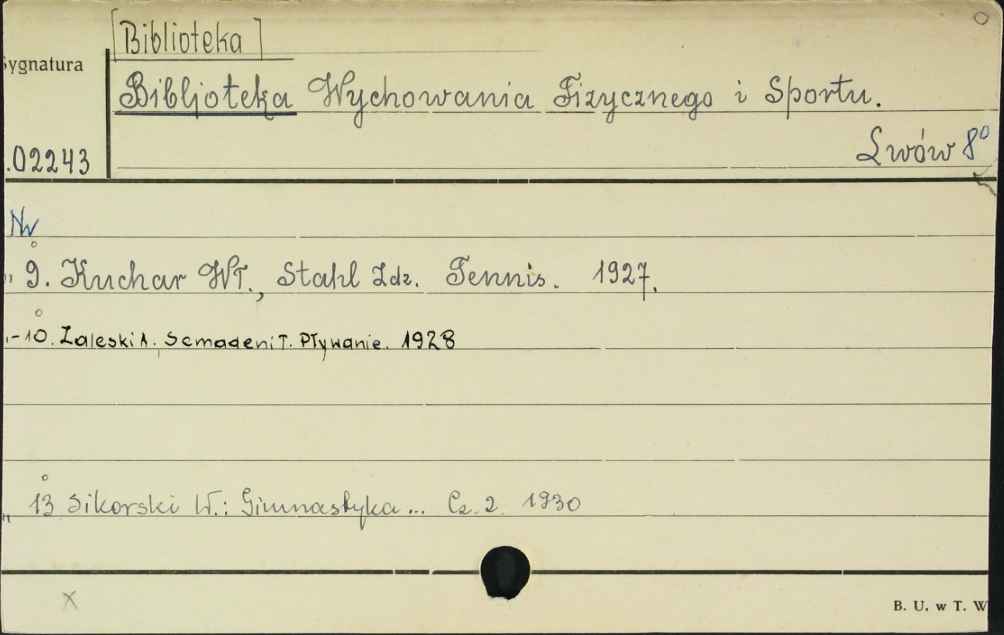 [Biblioteka]
Sygnatura
Bibljoteka Wychowania Fizycznego i Sportu.
.02243
Lwów 8°
Nr
" 9. Kuchar Wł., Stahl Zdz. Tennis. 1927.
-10. Zaleski A. Semadeni T. Pływanie. 1928
" 13 Sikorski W.: Gimnastyka... Cz. 2 1930
x
B. U. w T. W